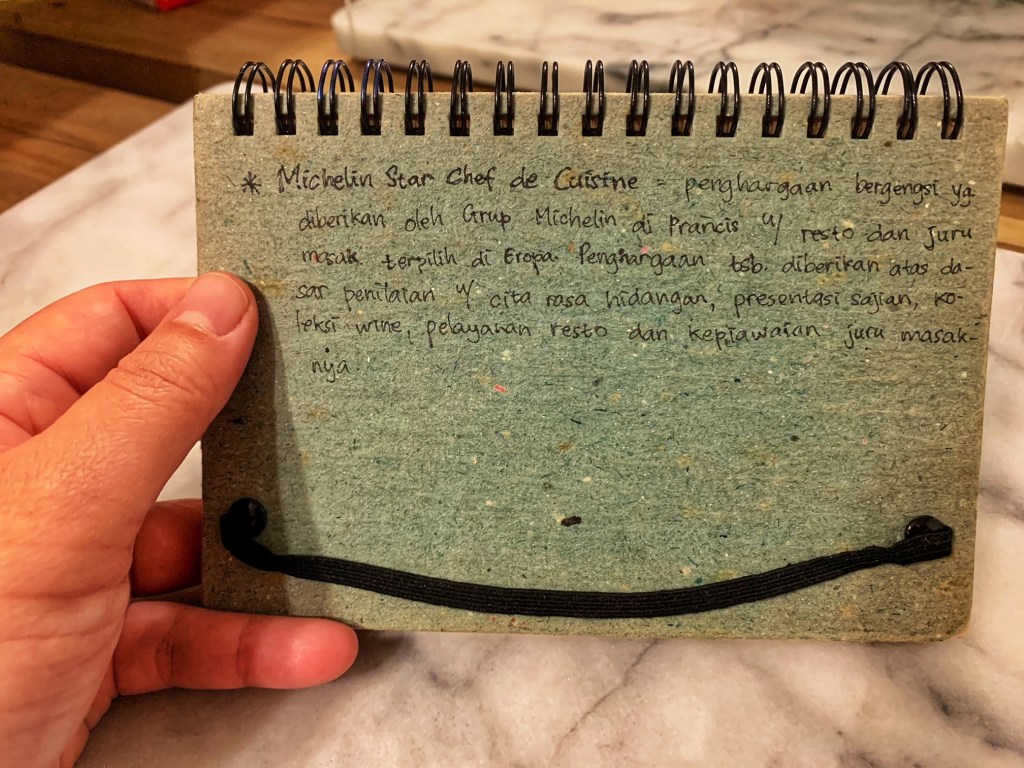 * Michelin Star Chef de Cuisine = penghargaan bergengsi yg
diberikan oleh Grup Michelin di Prancis u/ resto dan juru
masak terpilih di Eropa. Penghargaan tsb. diberikan atas da-
sar penilaian u/ cita rasa hidangan, presentasi sajian, ko-
leksi wine, pelayanan resto dan kepiawaian juru masak-
nya.